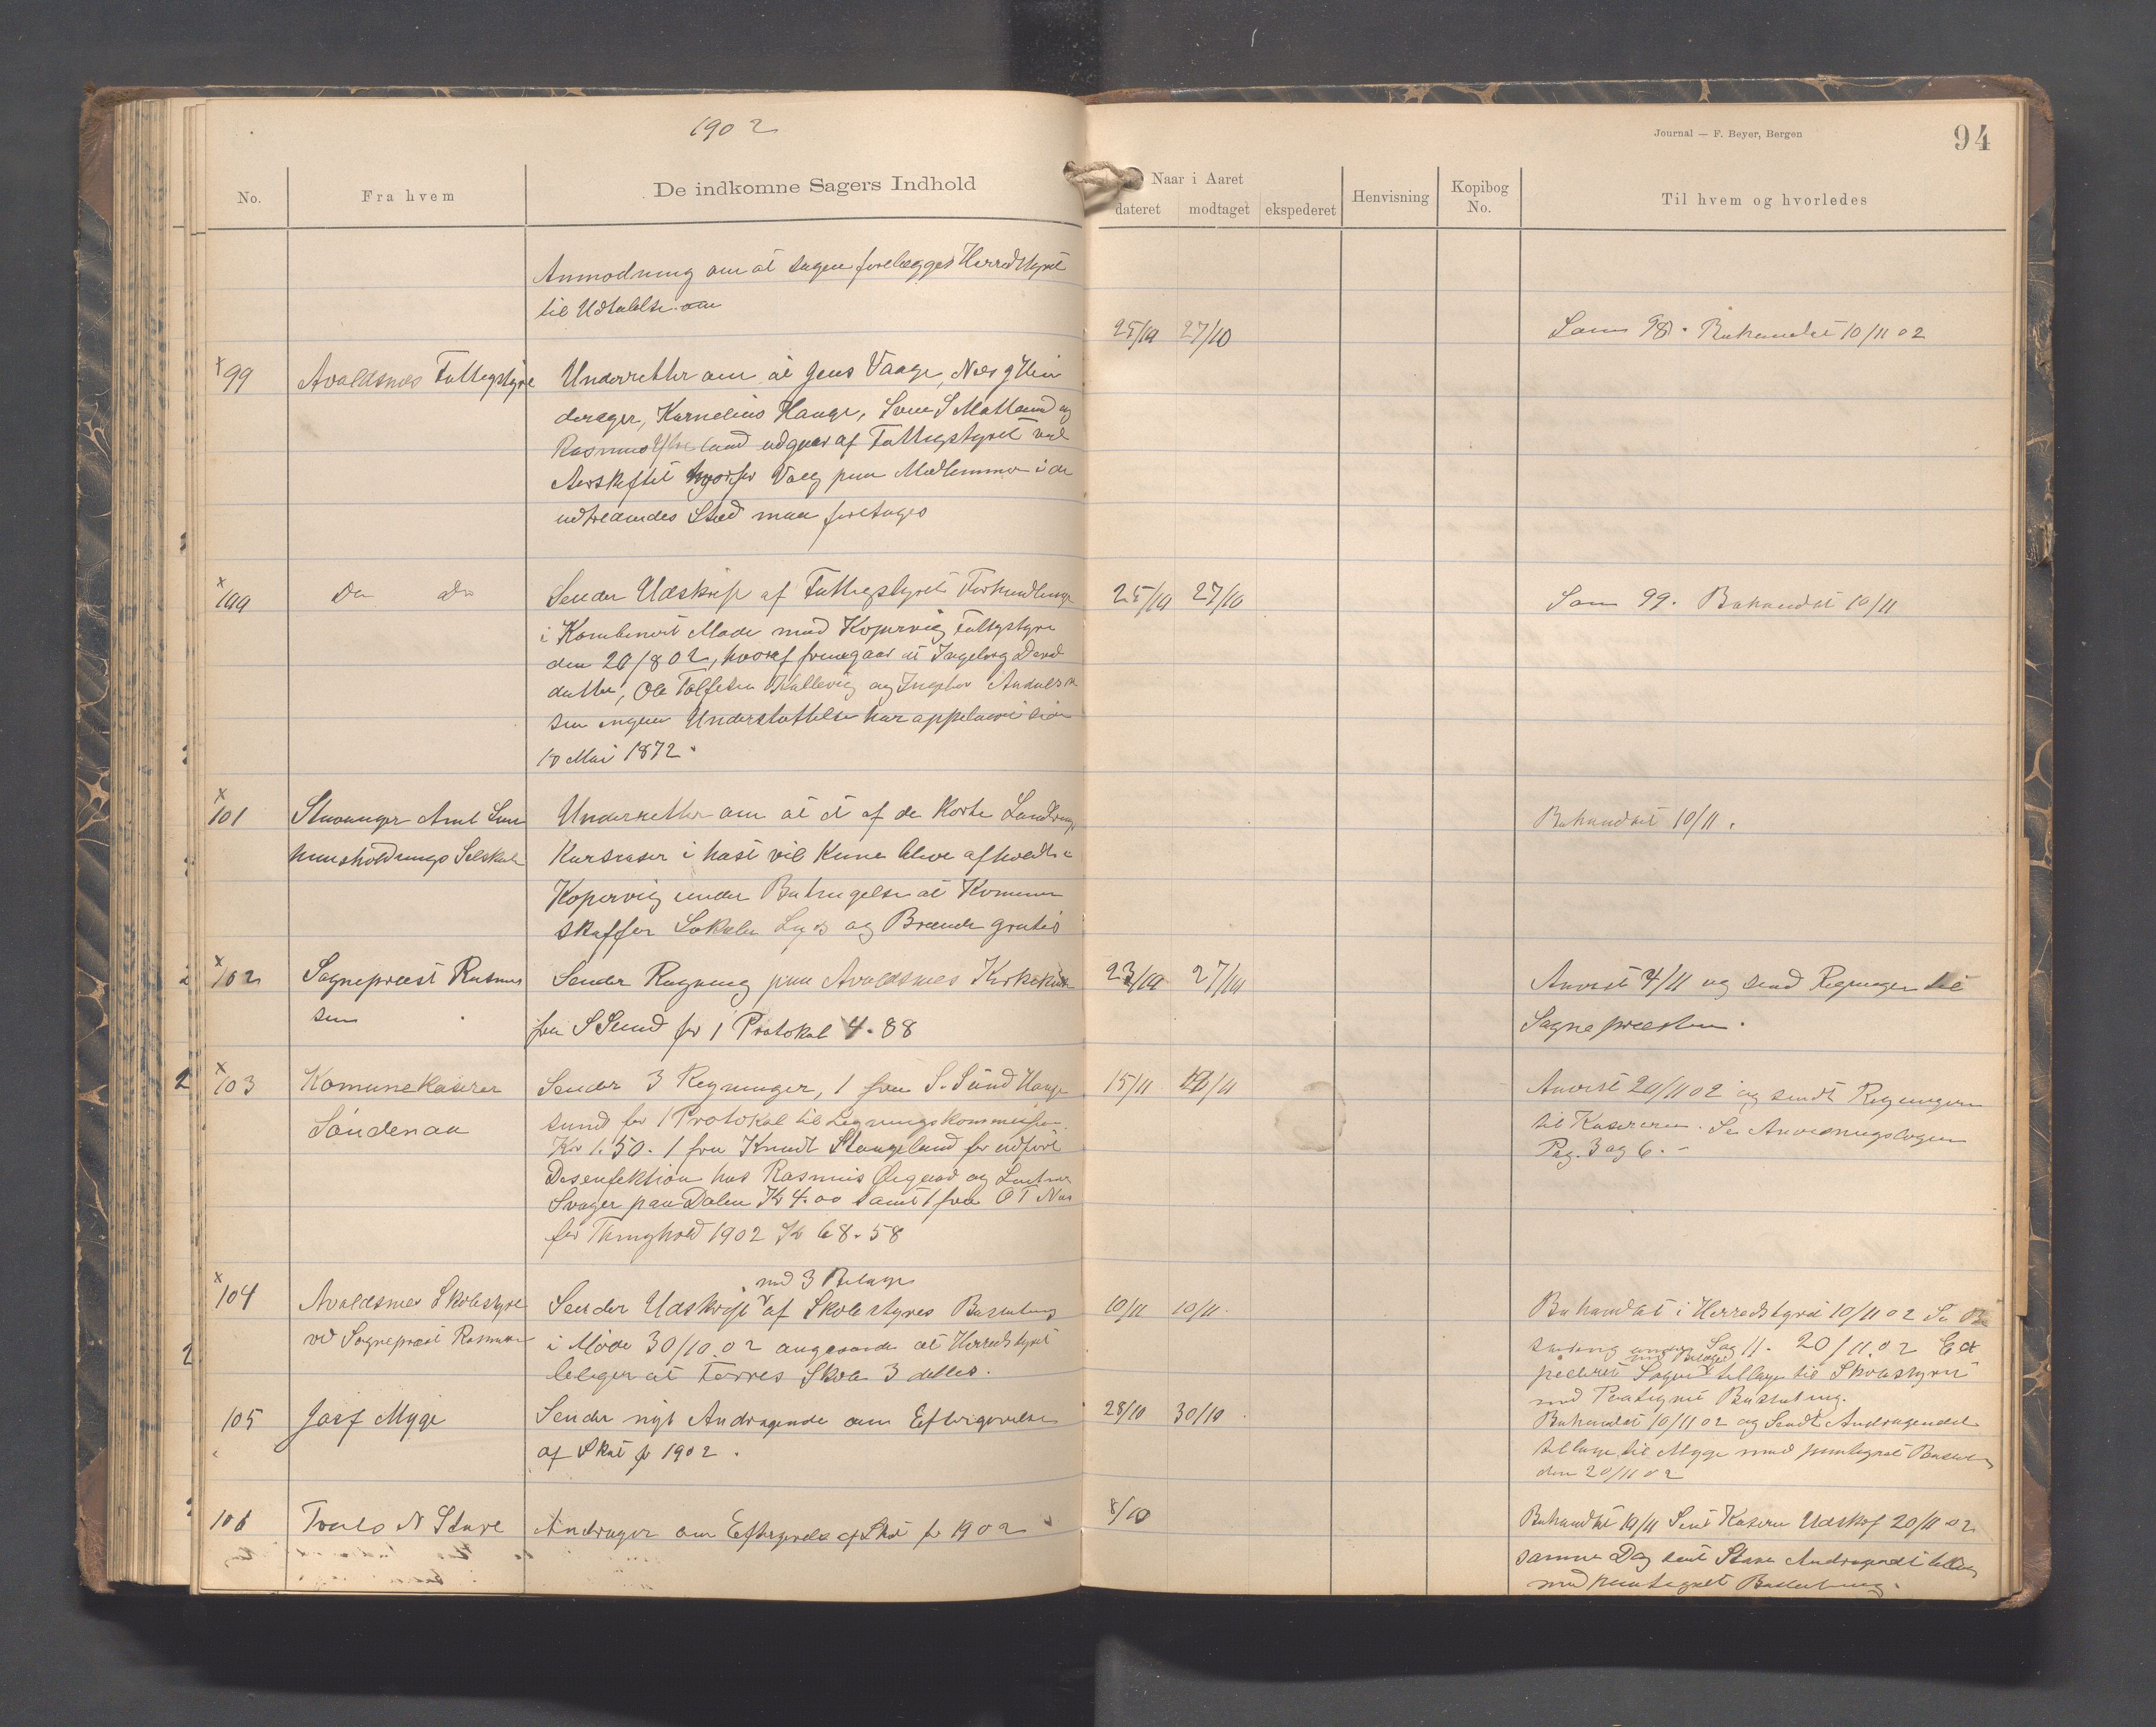 1902
Journal — F. Beyer, Bergen
94
No.
Fra hvem
De indkomne Sagers Indhold
Naar i Aaret
dateret
modtaget
ekspederet
Henvisning
Kopibog No.
Til hvem og hvorledes
Anmodning om at sagen forelægges Herredstyret
til Udtalelse
25/10 27/10
Som 98. Behandlet 10/11 02
x 99 Avaldsnes Fattigstyre
Underretter om at Jens Vaage, Nils
Kornelius Hauge, Sven S Matland og
Rasmus udgaar af Fattigstyret ved
Aarskiftet hvorfor Valg paa Medlemmer i de
udtrædendes Sted maa foretages
x 100 Do Do
Sender Udskrift af Fattigstyret Forhandlinger
i Kombineret Møde med Kopervig Fattigstyre
den 20/8 02, hvoraf fremgaar at Ingeborg David
datter, Ole og Andersen
ingen Understøttelse har siden
10 Mai 1872.
25/10 27/10
Som 99. Behandlet 10/11
x 101 Stavanger Amt Land
husholdnings Selskab
Underretter om at et af de korte Landbrugs
Kursuser i høst vil kune blive afholdt i
Kopervig under Betingelse at Komunen
skaffer Lokale Lys og Brænde gratis
Behandlet 10/11.
x 102 Sognepræst Rasmus
sen
Sender Regning paa Avaldsnes Kirkekasse
fra S Sund for 1 Protokol 4.88
23/10 27/10
Anvist 4/11 og send Regningen til
Sognepræsten.
x 103 Komunekaserer
Søndenaa
Sender 3 Regninger, 1 fra S. Sund Hauge
sund for 1 Protokol til Ligningskommisjon.
Kr 1.50. 1 fra Knudt Stangeland for udført
Desenfektion hos Rasmus og
Svager paa Dalen Kr 4.00 samt 1 fra O T Næs
for Thinghold 1902 Kr 68.58
15/11
Anvist 20/11 02 og sendt Regningerne
til Kasereren. Se Anvisningsbogen
Pag. 3 og 6. –
x 104 Avaldsnes Skolestyre
ved Sognepræst Rasmussen
med 3 Bilage
Sender Udskrift af Skolestyres Beslutning
i Møde 30/10.02 angaaende at Herredstyret
at Førres Skole 3 deles.
10/11 10/11.
Behandlet i Herredstyret 10/11 02 Se Be
slutning under Sag 11. 20/11.02 Eks
pederet Sagen med Bilager tilbage til Skolestyret
med Paategnet Beslutning.
105 Josef Myge
Sender nyt Andragende om Eftergivelse
af Skat for 1902.
28/10 30/10.
Behandlet 10/11 02 og Sendt Andragendet
tilbage til Myge med paategnet Beslutn
den 20/11 02
106 Troels N Stave
Andrager om Eftergivelse af Skat for 1902
8/10
Behandlet 10/11 Sent Kaserer Udskrf 20/11 02
samme Dag sent Stave Andragendet tilbage
med paategnet Beslutning.